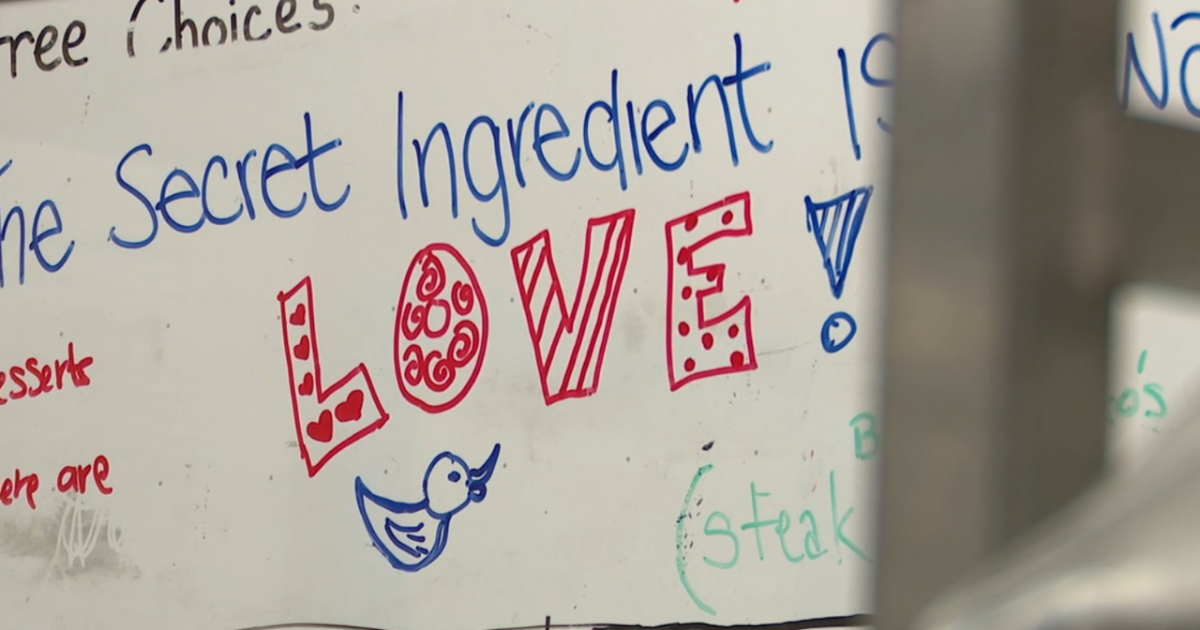 ree Choices:
he Secret Ingredient is
LOVE!
esserts
ere are
(steak